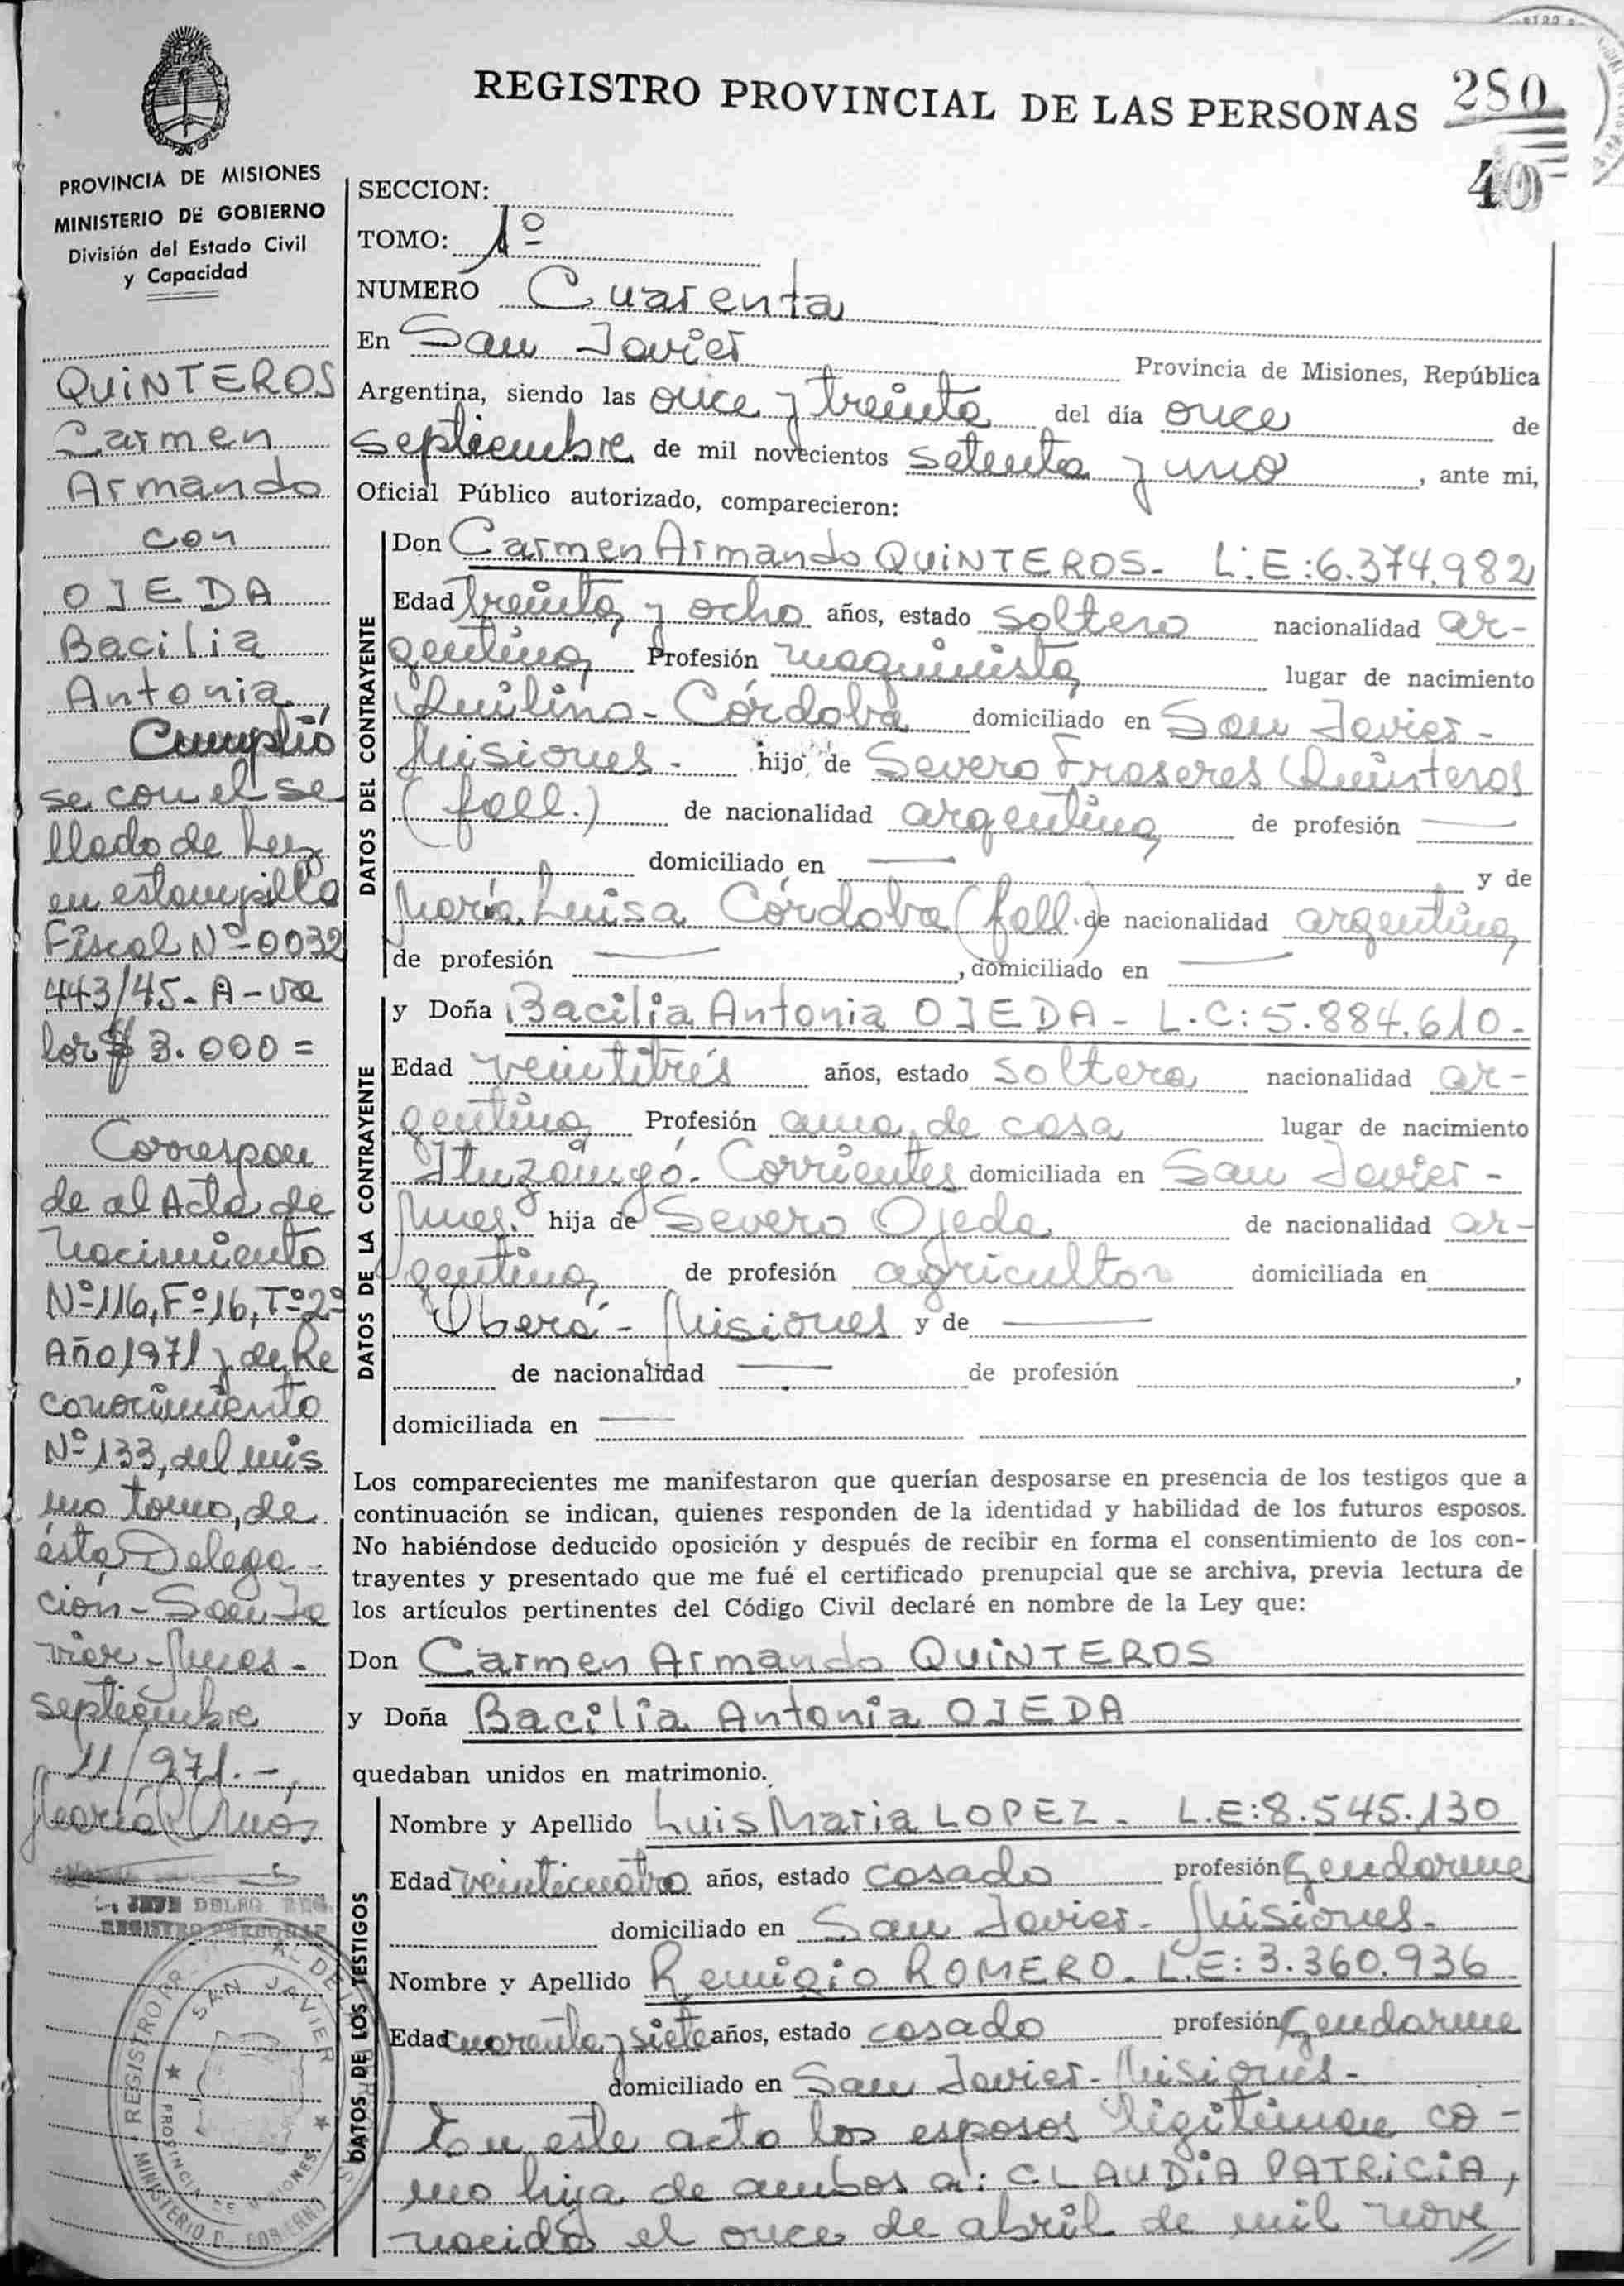 REGISTRO PROVINCIAL DE LAS PERSONAS
280
40
PROVINCIA DE MISIONES
MINISTERIO DE GOBIERNO
División del Estado Civil
y Capacidad
QUINTEROS
Carmen
Armando
con
OJEDA
Bacilia
Antonia
Cumplió
se con el se
llado de Ley
en estampilla
Fiscal Nº 0032
443/45- A - va
lor $ 3.000 =
Correspon
de al Acta de
Nacimiento
Nº 116, Fº 16, Tº 2º
Año 1971 y de Re
conocimiento
Nº 133, del mis
mo tomo, de
ésta Delega
ción - San Ja
vier - Mnes -
septiembre
11/971.-
SECCION:
TOMO: 1º
NUMERO Cuarenta
En San Javier Provincia de Misiones, República
Argentina, siendo las once y treinta del día once de
septiembre de mil novecientos setenta y uno, ante mi,
Oficial Público autorizado, comparecieron:
DATOS DEL CONTRAYENTE
Don Carmen Armando QUINTEROS - L.E: 6.374.982
Edad treinta y ocho años, estado soltero nacionalidad ar-
gentina Profesión maquinista lugar de nacimiento
Quilino - Córdoba domiciliado en San Javier -
Misiones - hijo de Severo Quinteros
(fall.) de nacionalidad argentina de profesión —
domiciliado en — y de
María Luisa Córdoba (fall.) de nacionalidad argentina
de profesión —, domiciliado en —
DATOS DE LA CONTRAYENTE
y Doña Bacilia Antonia OJEDA - L.C: 5.884.610 -
Edad veintitrés años, estado soltera nacionalidad ar-
gentina Profesión ama de casa lugar de nacimiento
Ituzaingó - Corrientes domiciliada en San Javier -
Mnes. hija de Severo Ojeda de nacionalidad ar-
gentina de profesión agricultor domiciliada en
Oberá - Misiones y de —
de nacionalidad — de profesión ,
domiciliada en —
Los comparecientes me manifestaron que querían desposarse en presencia de los testigos que a
continuación se indican, quienes responden de la identidad y habilidad de los futuros esposos.
No habiéndose deducido oposición y después de recibir en forma el consentimiento de los con-
trayentes y presentado que me fué el certificado prenupcial que se archiva, previa lectura de
los artículos pertinentes del Código Civil declaré en nombre de la Ley que:
Don Carmen Armando QUINTEROS
y Doña Bacilia Antonia OJEDA
quedaban unidos en matrimonio.
DATOS DE LOS TESTIGOS
Nombre y Apellido Luis Maria LOPEZ - L.E: 8.545.130
Edad veinticuatro años, estado casado profesión Gendarme
domiciliado en San Javier - Misiones -
Nombre y Apellido Remigio ROMERO - L.E: 3.360.936
Edad cuarenta y siete años, estado casado profesión Gendarme
domiciliado en San Javier - Misiones -
En este acto los esposos ligitiman co-
mo hija de ambos a: CLAUDIA PATRICIA,
nacida el once de abril de mil nove
//
SAN JAVIER
PROVINCIA DE MISIONES